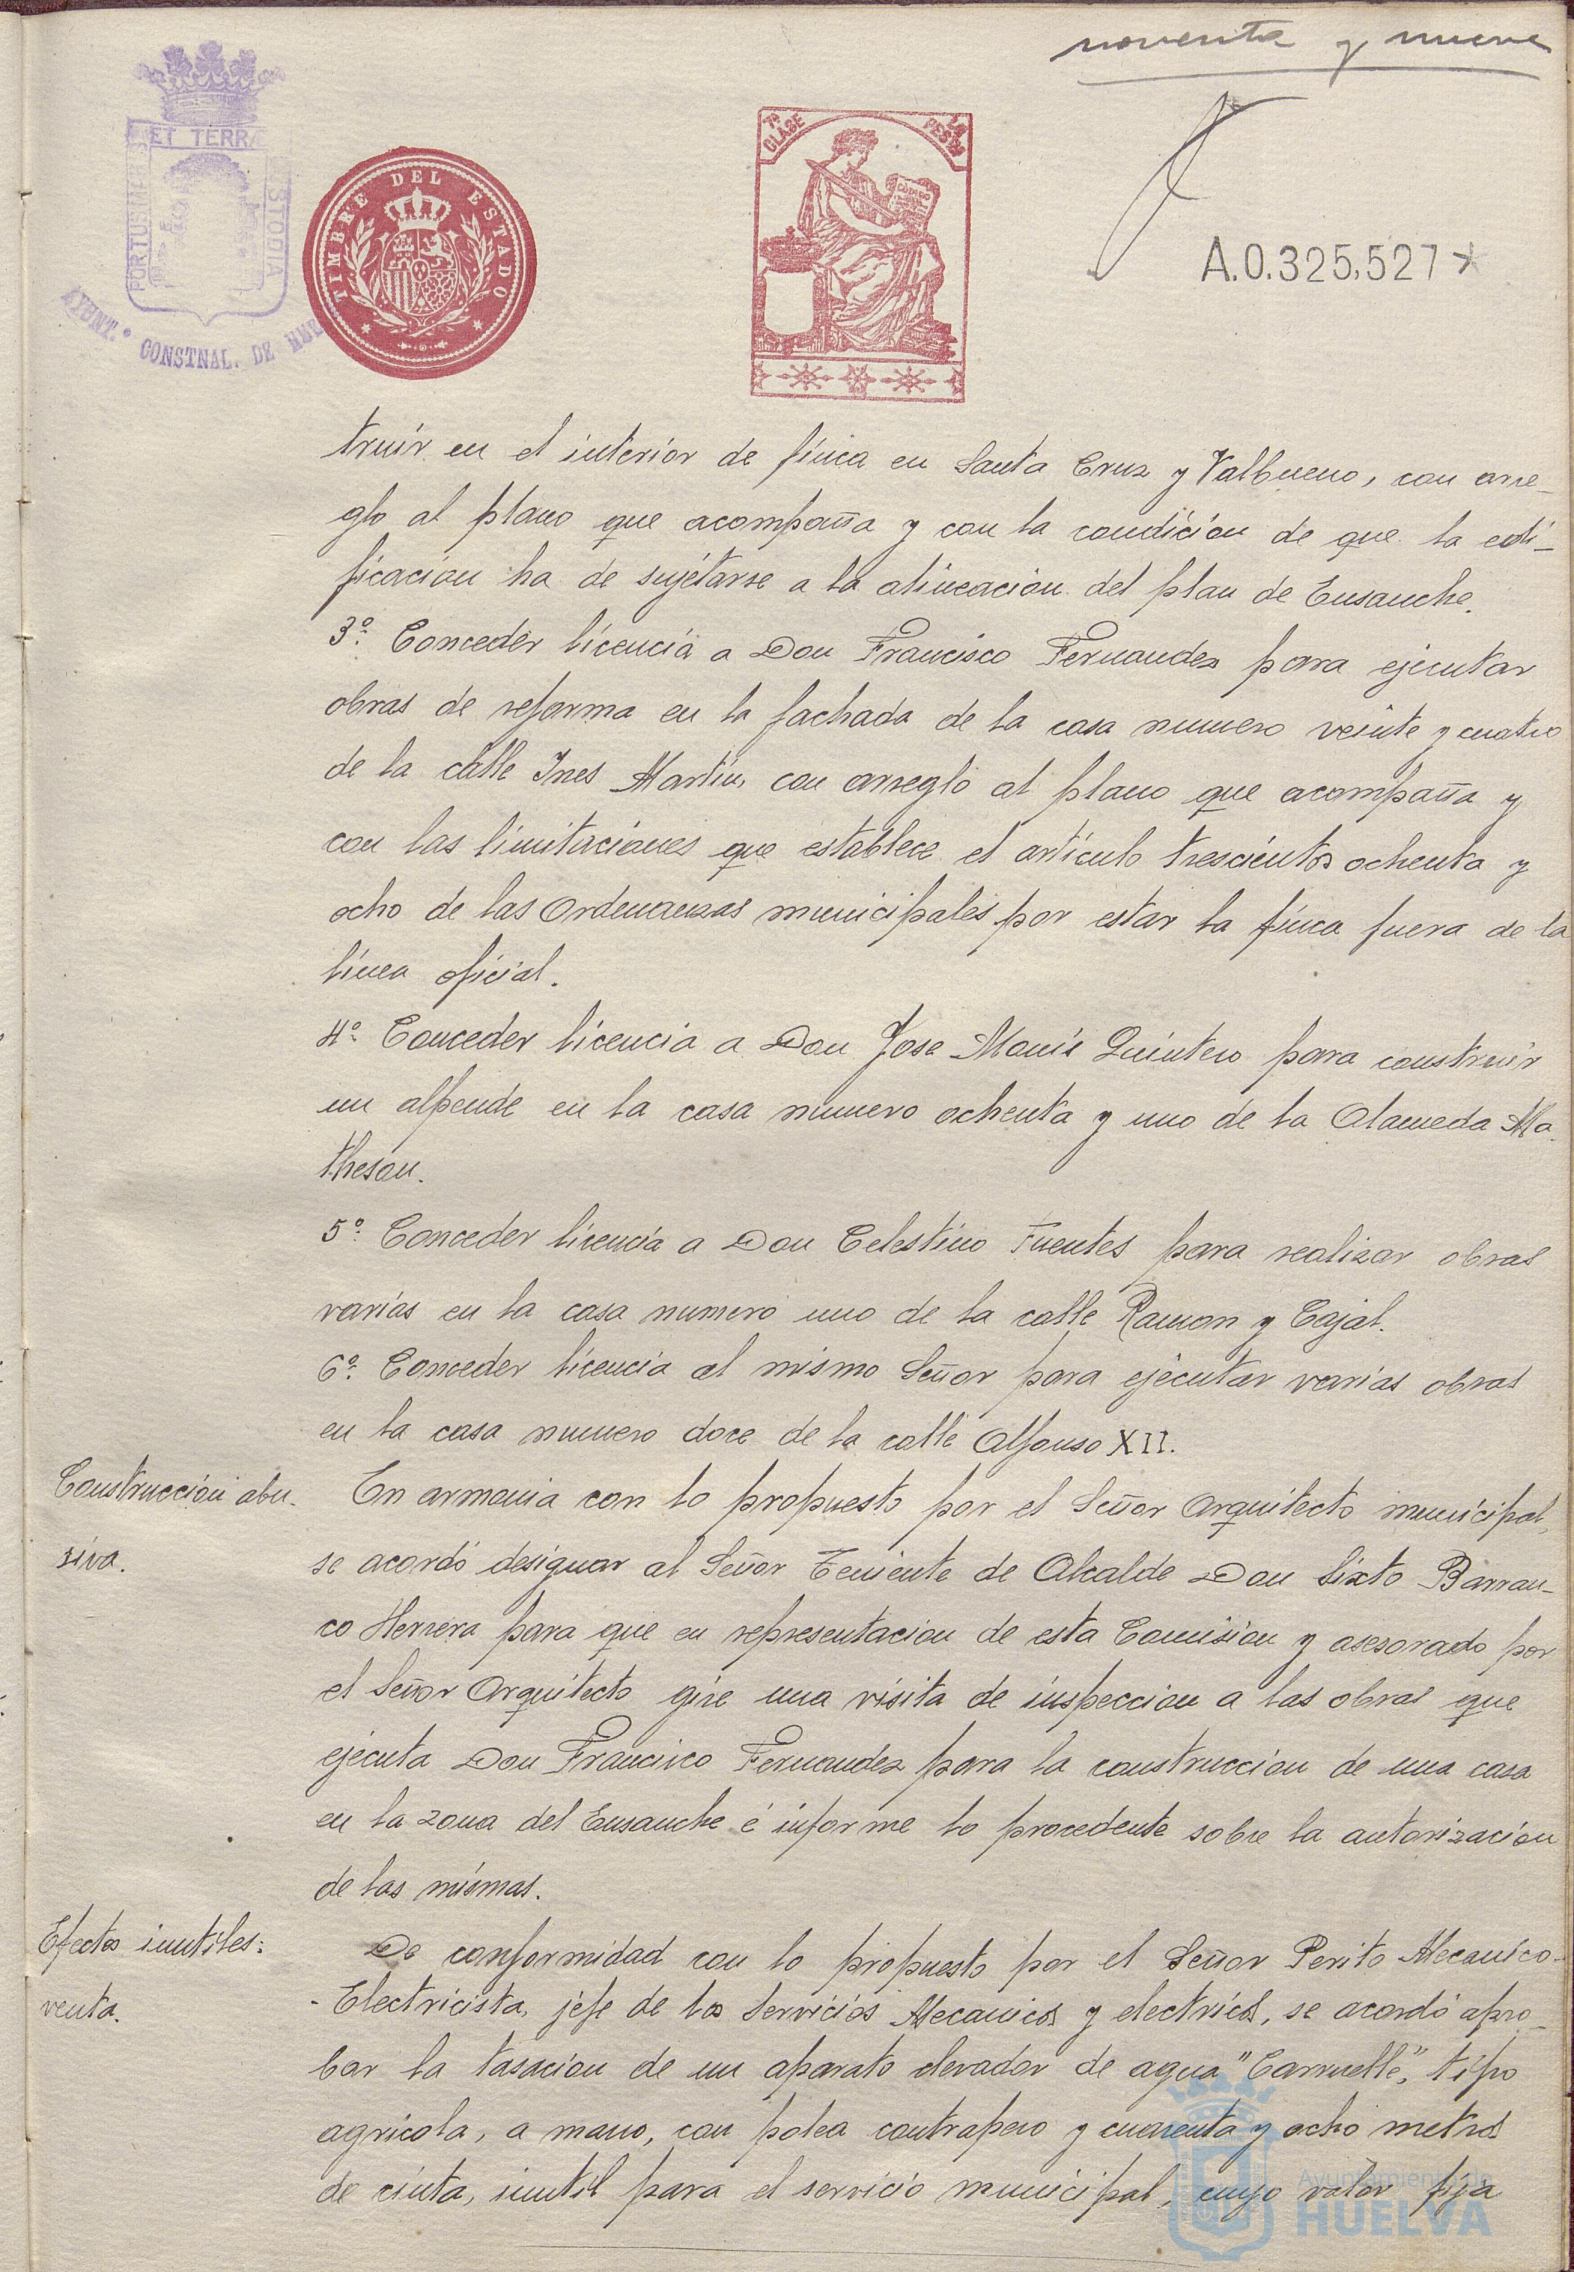 noventa y nueve
ET TERRÆ
PORTUS MARIS
CUSTODIA
AJUNT.º CONSTNAL. DE HUE
TIMBRE DEL ESTADO
7ª CLASE
PESETAS
A.0.325,527*
truir en el interior de finca en Santa Cruz y Valbueno, con arre-
glo al plano que acompaña y con la condición de que la edi-
ficacion ha de sujetarse a la alineación del plan de Ensanche.
3º Conceder licencia a Don Francisco Fernandez para ejecutar
obras de reforma en la fachada de la casa numero veinte y cuatro
de la calle Ines Martin, con arreglo al plano que acompaña y
con las limitaciones que establece el artículo trescientos ochenta y
ocho de las Ordenanzas municipales por estar la finca fuera de la
línea oficial.
4º Conceder licencia a Don Jose Maria Quintero para construir
un alpende en la casa numero ochenta y uno de la Alameda Ma-
theson.
5º Conceder licencia a Don Celestino Fuentes para realizar obras
varias en la casa numero uno de la calle Ramon y Cajal.
6º Conceder licencia al mismo Señor para ejecutar varias obras
en la casa numero doce de la calle Alfonso XII.
Construccion abu-
siva.
En armonia con lo propuesto por el Señor Arquitecto municipal,
se acordó designar al Señor Teniente de Alcalde Don Sixto Barran-
co Herrera para que en representacion de esta Comision y asesorado por
el Señor Arquitecto gire una visita de inspeccion a las obras que
ejecuta Don Francisco Fernandez para la construccion de una casa
en la zona del Ensanche é informe lo procedente sobre la autorizacion
de las mismas.
Efectos inutiles:
venta.
De conformidad con lo propuesto por el Señor Perito Mecanico-
-Electricista, jefe de los Servicios Mecanicos y electricos, se acordó apro-
bar la tasacion de un aparato elevador de agua "Carruelle", tipo
agricola, a mano, con polea contrapeso y cuarenta y ocho metros
de cinta, inutil para el servicio municipal, cuyo valor fija
Ayuntamiento de
HUELVA